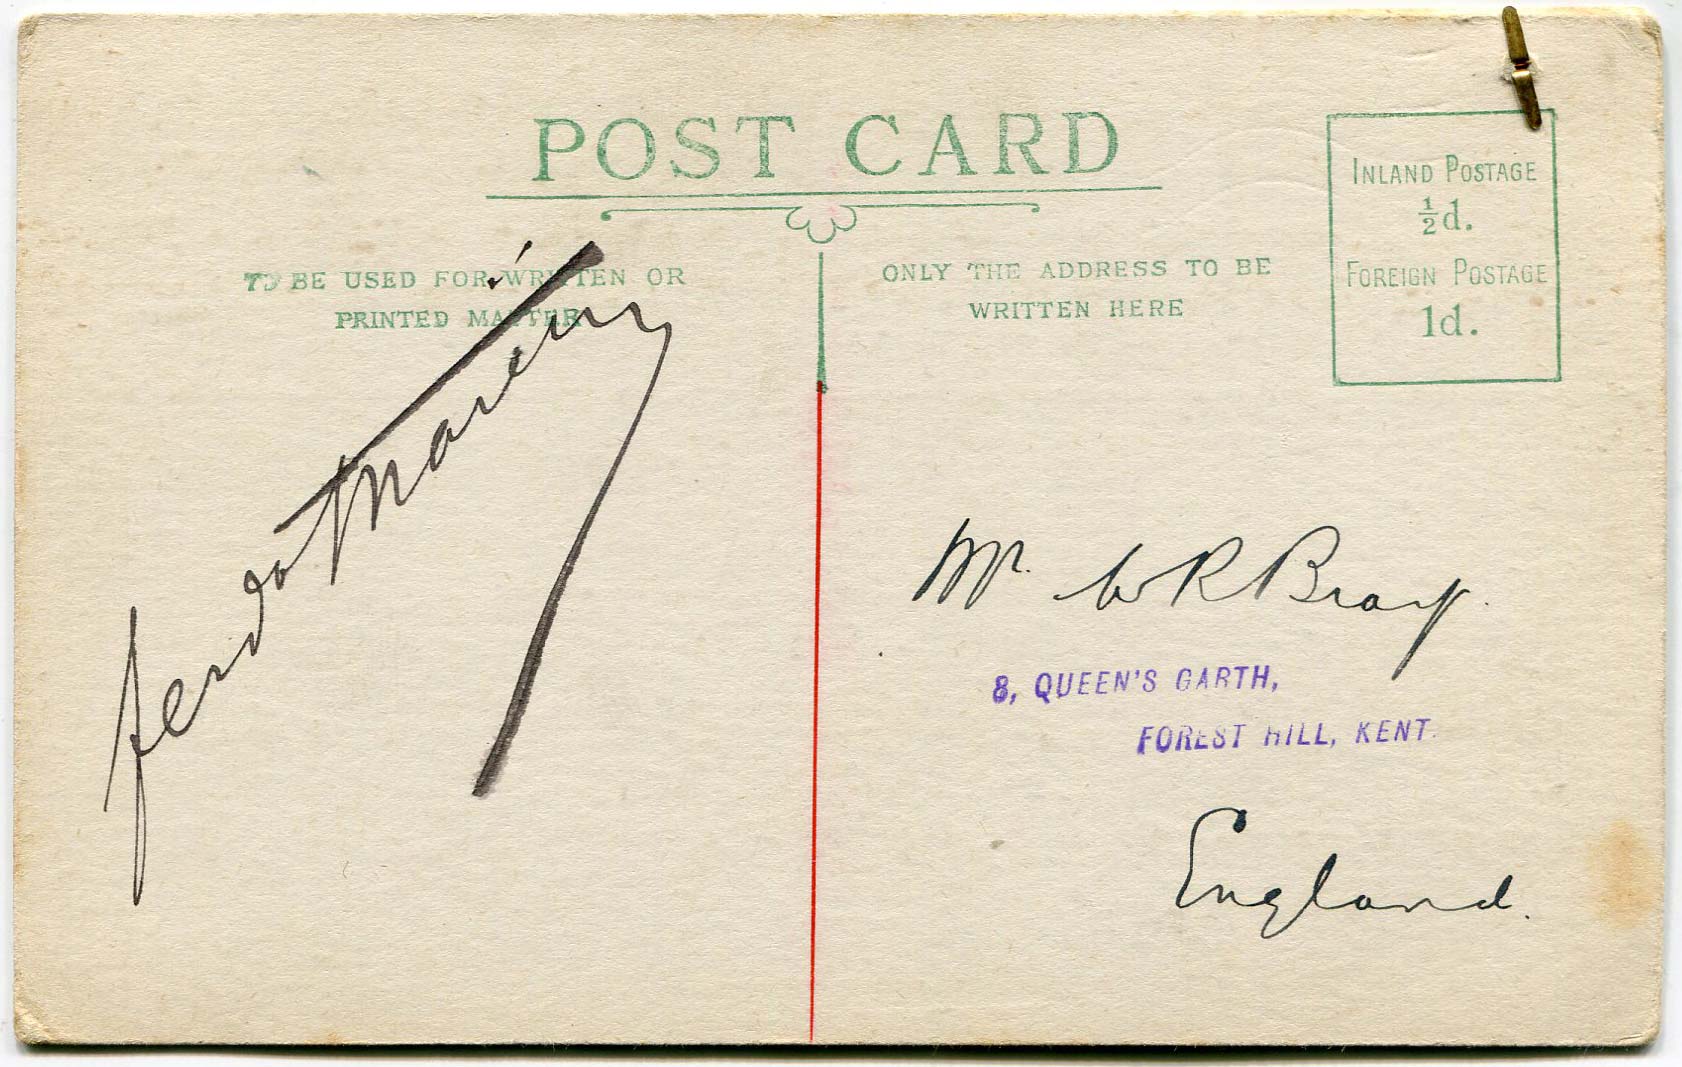 POST CARD
TO BE USED FOR WRITTEN OR
PRINTED MATTER
ONLY THE ADDRESS TO BE
WRITTEN HERE
INLAND POSTAGE
½d.
FOREIGN POSTAGE
1d.
Ferdo Marin
Mr. W R Bray.
8, QUEEN'S GARTH,
FOREST HILL, KENT.
England.